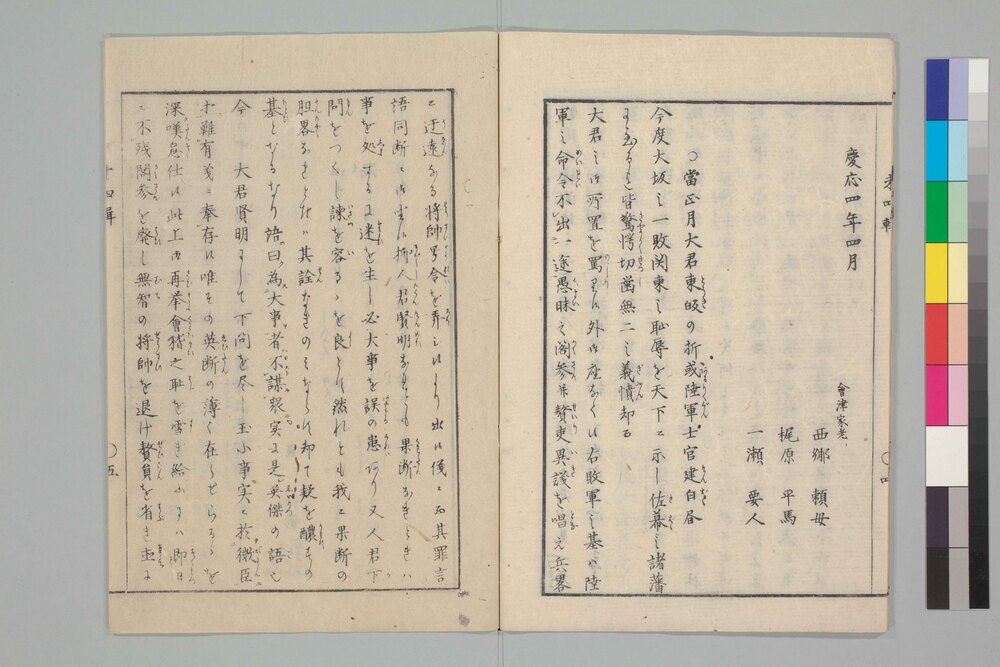 慶応四年四月
會津家老
西郷 頼母
梶原 平馬
一瀬 要人
○當正月大君東皈の折或陸軍士官建白昼
今度大坂之一敗関東之恥辱を天下ニ示し佐幕之諸藩
皆驚愕切歯無二之義憤却る
大君之御所置を罵り候外御座なく候右敗軍之基ハ陸
軍之命令不出一途愚昧之閣参并贅吏異議を唱え兵畧
ニ迂遠なる将帥号令を弄し候より出候儀ニ而其罪言
語同断ニ御座候抑人君賢明なれとも果断なきときハ
事を処するに迷を生し必大事を誤の患あり又人君下
問をつくし諫を容るゝを良とす然れとも我ニ果断の
胆畧なきときハ其詮なきのミならす却て疑を醸すの
基となるなり語曰為大事者不謀衆実に是英傑の語也
今 大君賢明にして下問を尽し玉ふ事実ニ於微臣
難有義ニ奉存候唯其の英断の薄く在らせらるゝを
深嘆息仕候此上御再挙會稽之恥を雪き給ふにハ即日
ニ不残閣参を廃し無智の将帥を退け贅員を省き
十四輯
○五